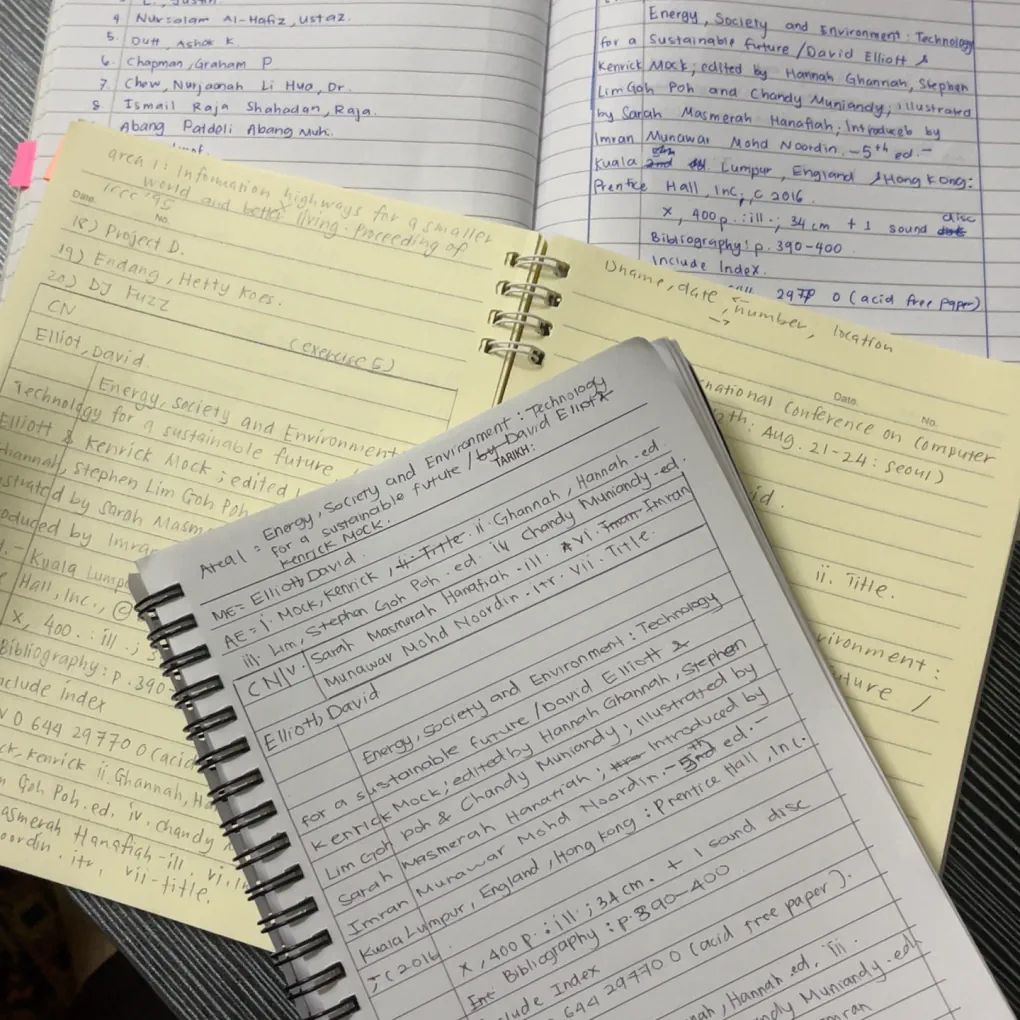 4 Nursalam Al-Hafiz, ustaz.
5. Dutt, Ashok K.
6. Chapman, Graham P
7. Chew, Nurjaanah Li Hua, Dr.
8 Ismail Raja Shahadan, Raja.
Abang Patdeli Abang Muh.
Energy, Society and Environment: Technology
for a Sustainable future / David Elliott &
Kenrick Mock; edited by Hannah Ghannah, Stephen
Lim Goh Poh and Chandy Muniandy; illustrated
by Sarah Masmerah Hanafiah; Introduceb by
Imran Munawar Mohd Noordin. - 5th ed. -
Kuala Lumpur, England & Hong Kong:
Prentice Hall, Inc; C 2016.
x, 400 p. : ill.; 34 cm + 1 sound disc
Bibliography: p. 390-400
Include Index.
2977 0 (acid free paper)
area 1: Information highways for a smaller
world and better living. Proceeding of
ICCC '95
Date. No.
18) Project D.
19) Endang, Hetty Koes.
20) DJ Fuzz
(exercise 5)
CN
Elliot, David.
Energy, society and Environment
Technology for a sustainable future
Elliott & Kenrick Mock; edited
Ghannah, Stephen Lim Goh Poh
strated by Sarah Masm
oduced by Imra
.- Kuala Lump
Hall, Inc., ©
x, 400. : ill.; 3
Bibliography: p. 390-
nclude index
0 644 29770 0 (acid
ck, Kenrick ii. Ghannah, Ha
Goh Poh. ed, iv, chandy
asmerah Hanafiah-ill. vi. I
oordin. itr, vii-title.
Uname, date, number, location
Date No.
national Conference on computer
th: Aug. 21-24: Seoul)
id.
ii. Title.
vironment:
uture /
Area 1 = Energy, Society and Environment: Technology
for a sustainable future / by David Elliott &
Kenrick Mock.
TARIKH:
ME = Elliott, David.
AE = i. Mock, Kenrick, ii. Title ii. Ghannah, Hannah. ed.
iii. Lim, Stephen Goh Poh. ed. iv Chandy Muniandy. ed.
V. Sarah Masmerah Hanafiah. ill. vi Iman Imran
Munawar Mohd Noordin. itr. vii. Title.
CN
Elliott, David
Energy, Society and Environment: Technology
for a sustainable future / David Elliott &
Kenrick Mock; edited by Hannah Ghannah, Stephen
Lim Goh Poh & Chandy Muniandy; illustrated by
Sarah Masmerah Hanafiah; Introduced by
Imran Munawar Mohd Noordin. - 5th ed. -
Kuala Lumpur, England, Hong Kong: Prentice Hall, Inc.
; C 2016.
x, 400 p. : ill.; 34 cm. + 1 sound disc
Bibliography: p. 390-400
clude Index
644 29770 0 (acid free paper).
nah, Hannah. ed. iii.
ndy Muniandy. ed
mran